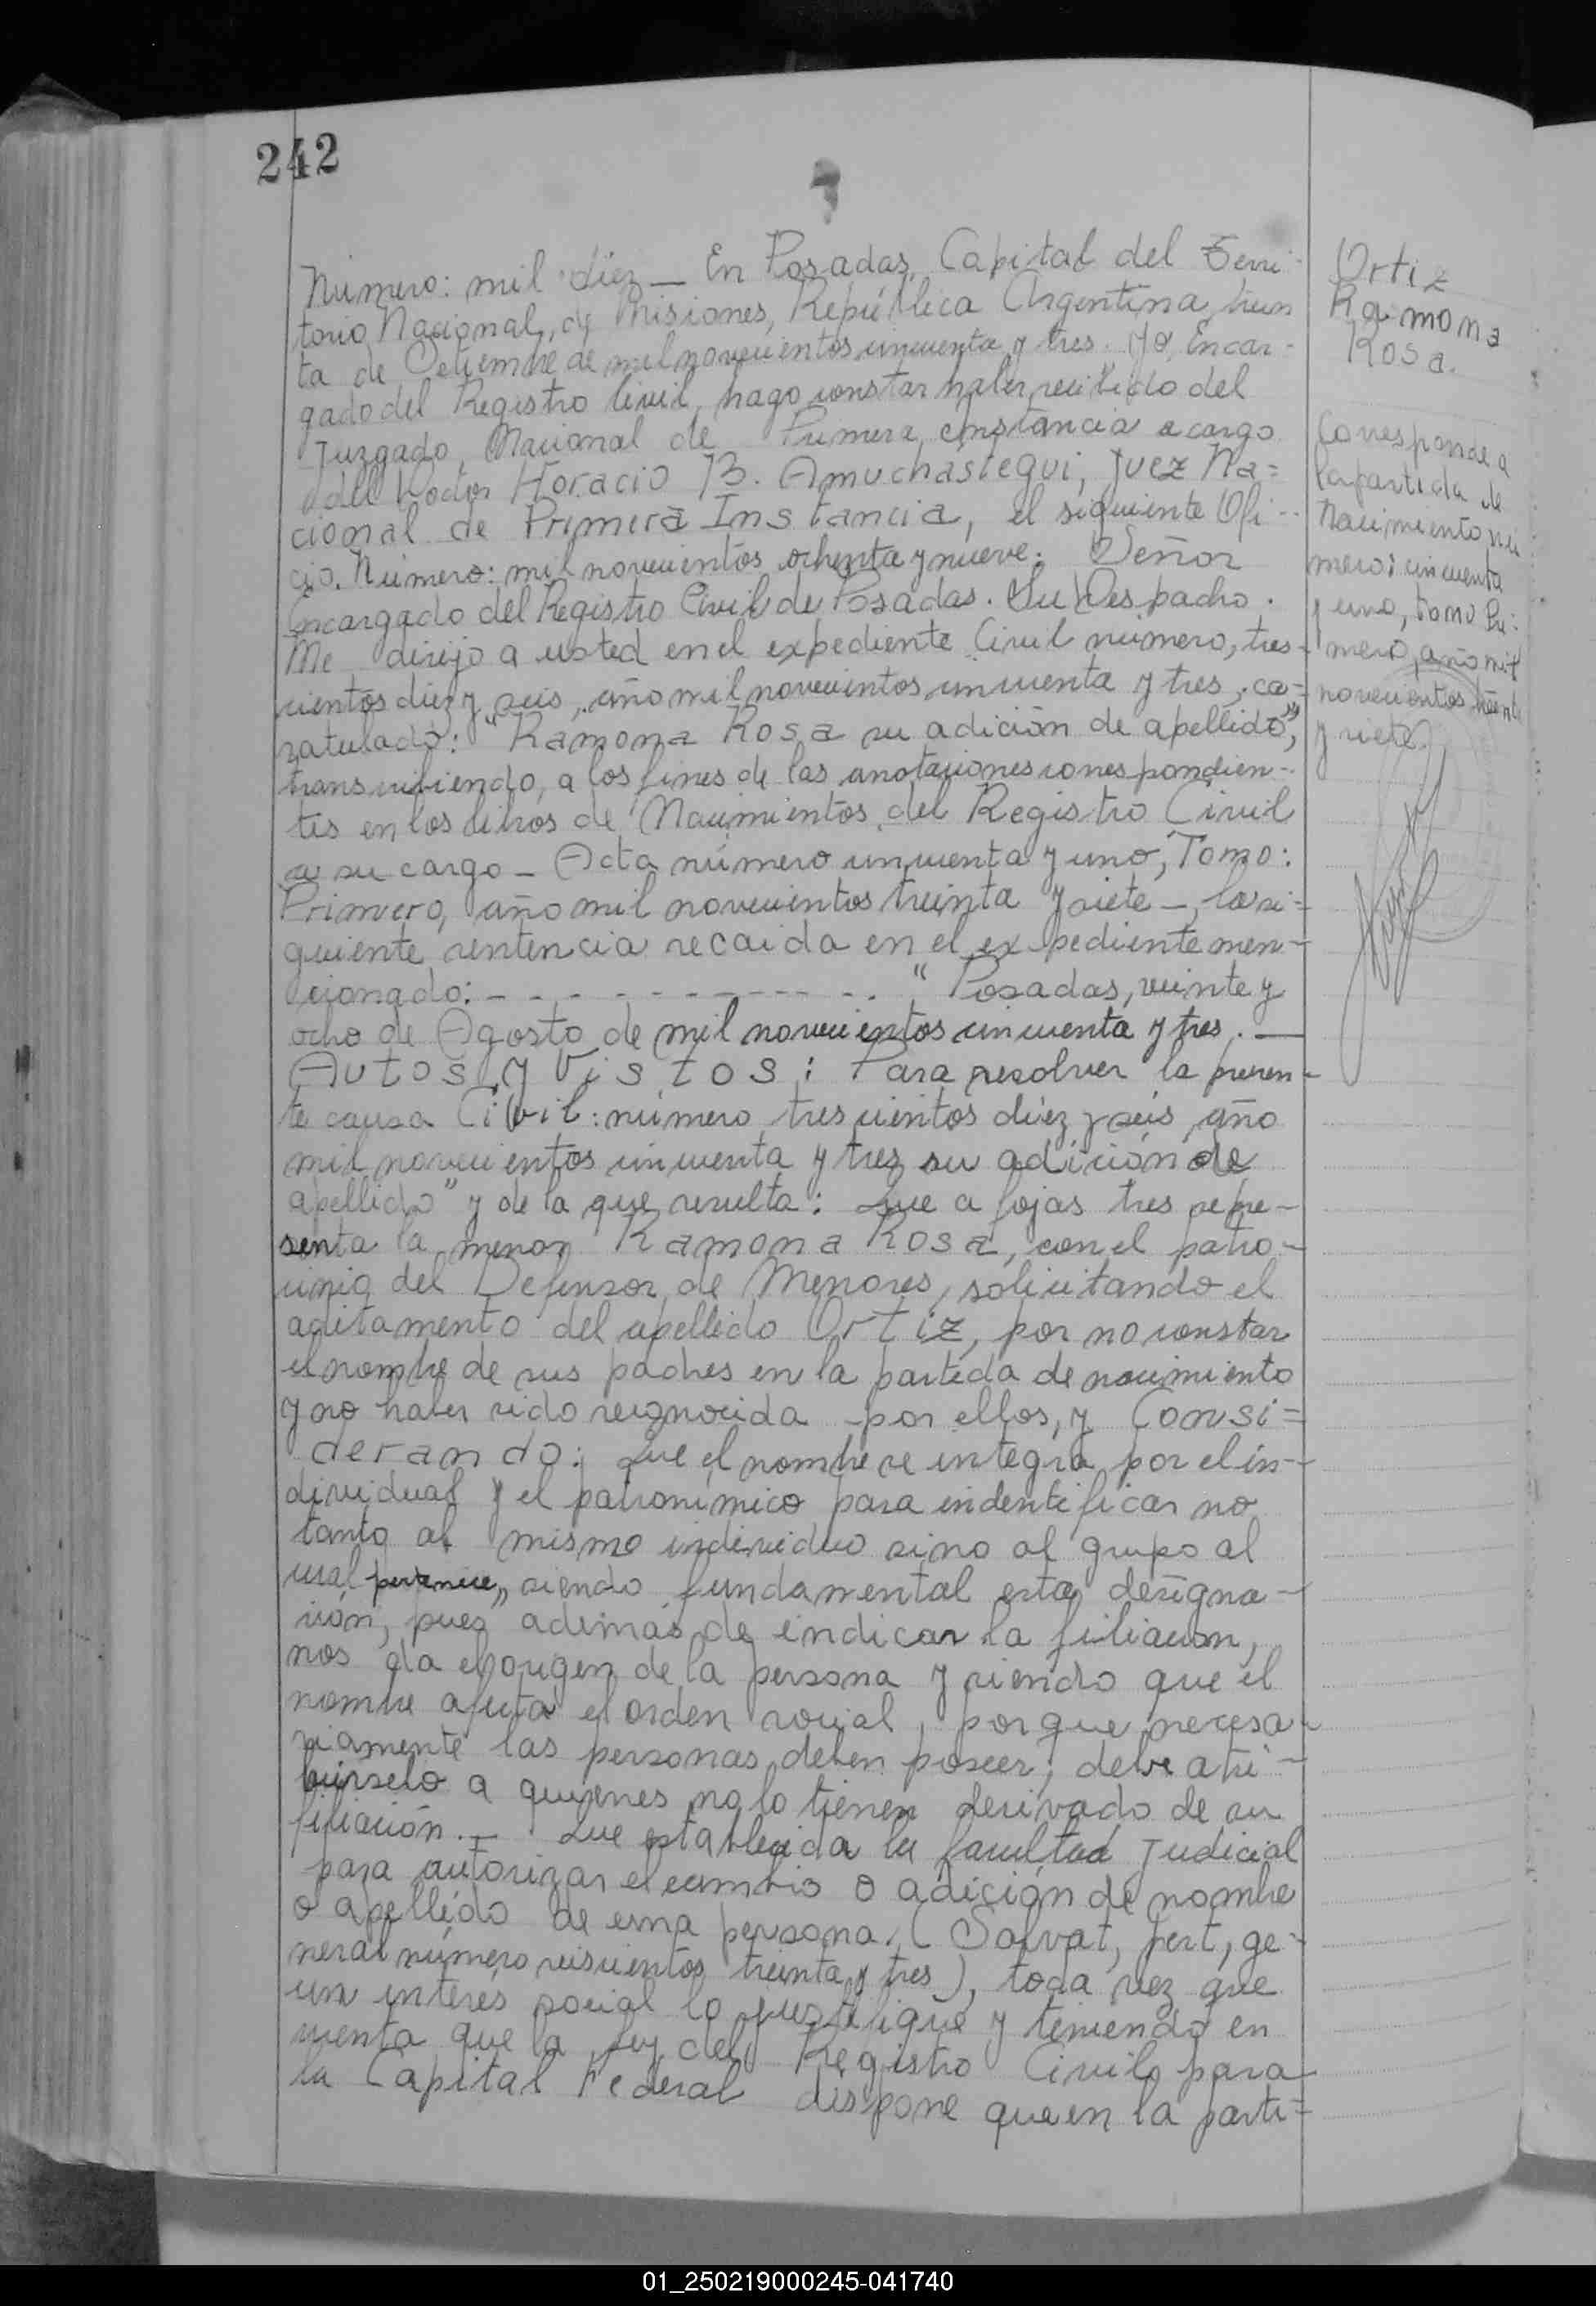 242
Número: mil diez — En Posadas, Capital del Terri-
torio Nacional, de Misiones, República Argentina, trein
ta de de mil novecientos cincuenta y tres. Yo, Encar-
gado del Registro Civil, hago constar haber recibido del
Juzgado Nacional de Primera Instancia a cargo
del Doctor Horacio B. Amuchástegui, Juez Na=
cional de Primera Instancia, el siguiente Ofi-
cio. Número: mil novecientos ochenta y nueve. Señor
Encargado del Registro Civil de Posadas. Su Despacho.
Me dirijo a usted en el expediente Civil número, tres-
cientos diez y seis, año mil novecientos cincuenta y tres, ca-
ratulado: "Ramona Rosa su adición de apellido",
transcribiendo, a los fines de las anotaciones correspondien-
tes en los libros de Nacimientos del Registro Civil
a su cargo - Acta número cincuenta y uno, Tomo:
Primero, año mil novecientos treinta y siete -, la si=
guiente sentencia recaida en el expediente men-
cionado: - - - - - - - - - - - - "Posadas, veinte y
ocho de Agosto de mil novecientos cincuenta y tres. —
Autos y Vistos: Para resolver la presen-
te causa Civil: número trescientos diez y seis, año
mil novecientos cincuenta y tres su adición de
apellido" y de la que resulta: Que a fojas tres se pre-
senta la menor Ramona Rosa, con el patro-
cinio del Defensor de Menores, solicitando el
aditamento del apellido Ortiz, por no constar
el nombre de sus padres en la partida de nacimiento
y no haber sido reconocida por ellos, y Consi=
derando: Que el nombre se integra por el in-
dividual y el patronímico para indentificar no
tanto al mismo individuo sino al grupo al
cual pertenece, siendo fundamental esta designa-
ción, pues además de indicar la filiación,
nos da el origen de la persona y siendo que el
nombre afecta el orden social, porque necesa-
riamente las personas deben poseer; debe atri-
buírselo a quienes no lo tienen derivado de su
filiación. - Que establecida la facultad Judicial
para autorizar el cambio o adición de nombre
o apellido de una persona. (Salvat, ge-
neral número seiscientos treinta y tres), toda vez que
un interés social lo justifique y teniendo en
cuenta que la ley del Registro Civil para
la Capital Federal dispone que en la parti=
Ortiz
Ramona
Rosa.
Corresponde a
la partida de
Nacimiento nú
mero: cincuenta
y uno, tomo Pri-
mero, año mil
novecientos treinta
y siete.
01_250219000245-041740